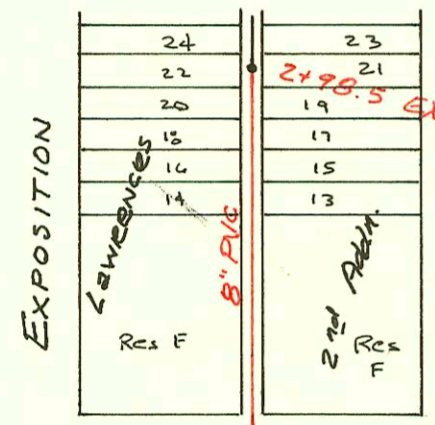 EXPOSITION
24
22
20
18
16
14
Lawrences
Res F
8" PVC
23
21
2+98.5 EX
19
17
15
13
2nd Addn.
Res
F